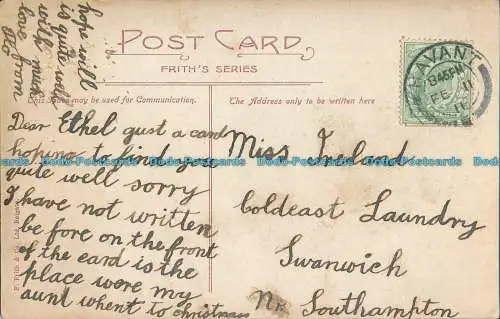 hope will
is quite well
with much
love from
POST CARD
FRITH'S SERIES
This Space may be used for Communication.
The Address only to be written here
HAVANT
8.45PM
FE 11
11
Dear Ethel gust a card
hoping to find you
quite well sorry
I have not written
be fore on the front
of the card is the
place were my
aunt whent to christmas
Miss Ireland
Coldeast Laundry
Swanwich
Nr Southampton
F. Frith & Co. Ltd. Reigate
Dodo-Postcards Dodo-Postcards Dodo-Postcards Dodo-Postcards